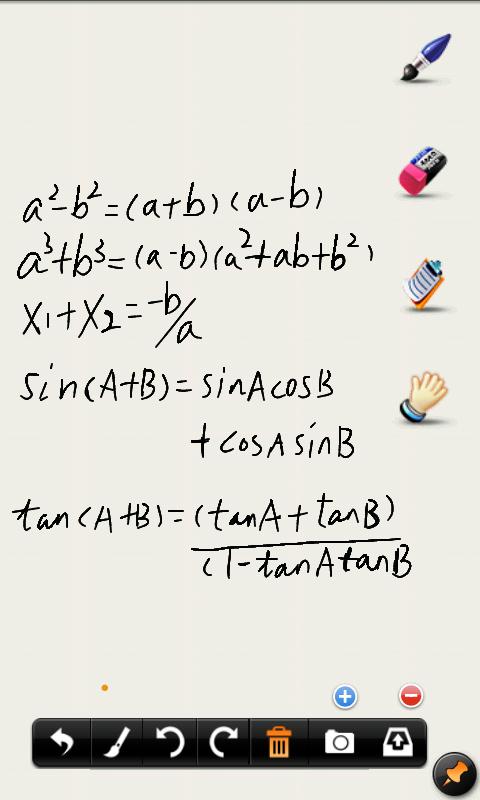 a²-b²=(a+b)(a-b)
a³+b³=(a-b)(a²+ab+b²)
x₁+x₂=-b/a
sin(A+B)=sinAcosB
+cosAsinB
tan(A+B)=(tanA+tanB)
(1-tanAtanB